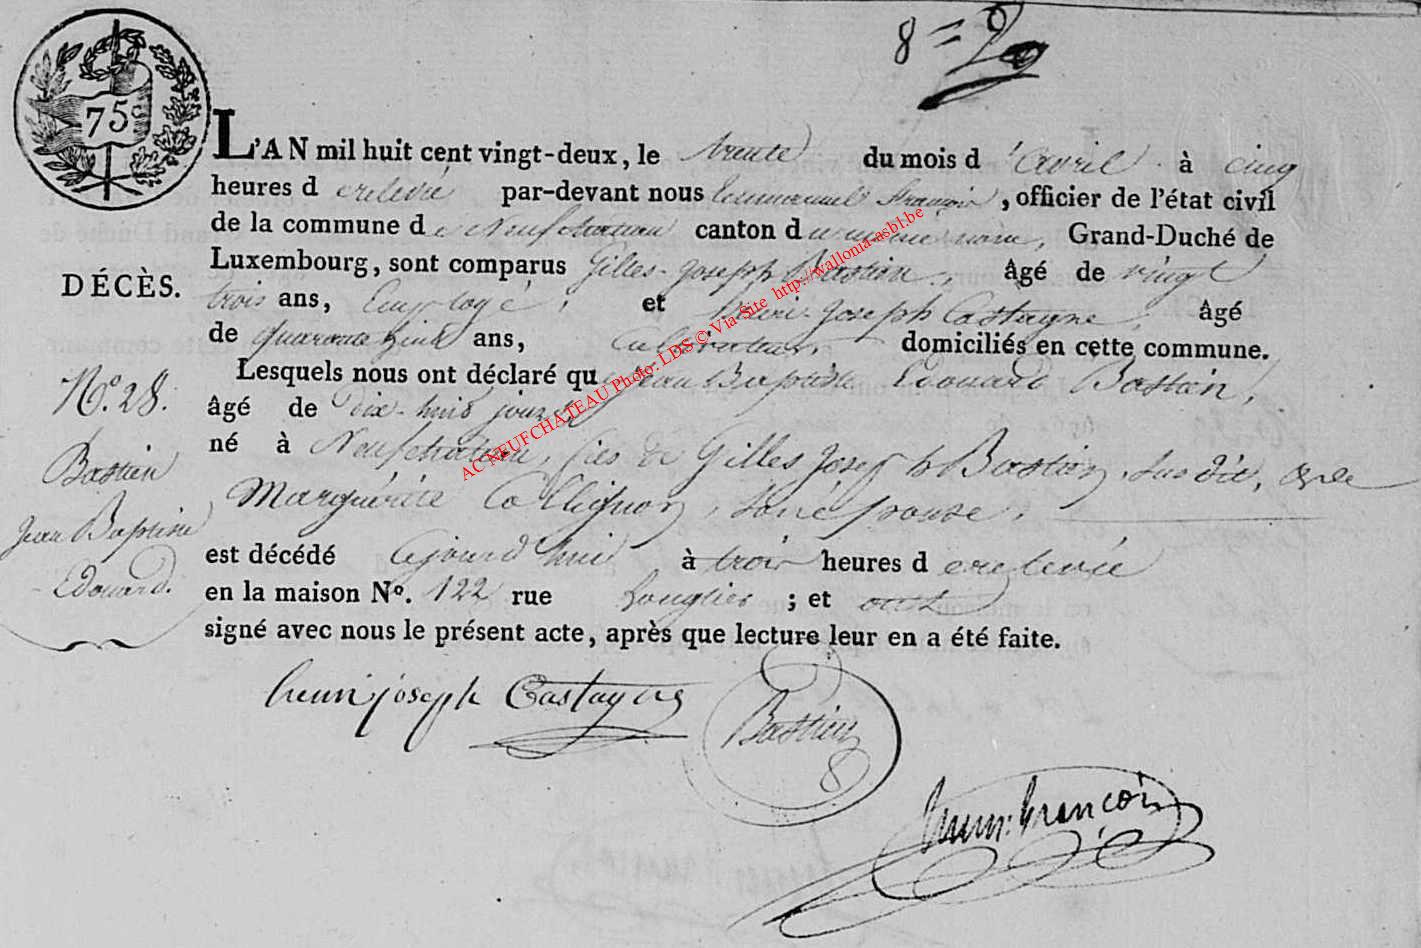 8 = 2
75 c
L'AN mil huit cent vingt-deux, le trente du mois d'avril à cinq
heures d erelevée par-devant nous Emmanuel François, officier de l'état civil
de la commune de Neufchateau canton du meme nom, Grand-Duché de
Luxembourg, sont comparus Gilles-Joseph Bastien, âgé de vingt
trois ans, Employé, et Henri-Joseph Castagne, âgé
de quarante huit ans, Cultivateur, domiciliés en cette commune.
DÉCÈS.
Lesquels nous ont déclaré que Jean Baptiste Edouard Bastien,
âgé de dix-huit jours,
né à Neufchateau, fils de Gilles Joseph Bastien, susdit, et de
Marguerite Collignon, son épouse,
est décédé aujourd'hui à trois heures d erelevée
en la maison Nº. 122 rue Longlier ; et ont
signé avec nous le présent acte, après que lecture leur en a été faite.
Nº. 28.
Bastien
Jean Baptiste
Edouard.
henri joseph Castagne
Bastien
Emm. François
AC NEUFCHATEAU Photo: LDS © Via Site http://wallonia-asbl.be